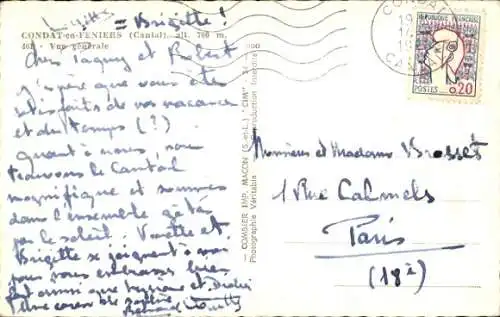 = Brigette !
CONDAT-en-FENIERS (Cantal), alt. 700 m.
Vue générale
Cher Jacquy et Robert
J'espère que vous êtes
satisfaits de vos vacances
et du temps (?)
quant à nous, nous
trouvons le Cantal
magnifique et sommes
dans l'ensemble gâtés
par le soleil.
Brigette se joignent à moi
pour vous embrasser bien
fort ainsi que et Didier
COMBIER IMP. MACON (S.-et-L.) "CIM"
Photographie Véritable reproduction interdite
CONDAT
REPUBLIQUE FRANCAISE
POSTES 0,20
Monsieur et Madame Brosset
1 Rue Calmels
Paris
(18è)